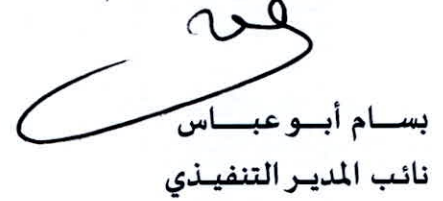 بسام أبو عباس
نائب المدير التنفيذي